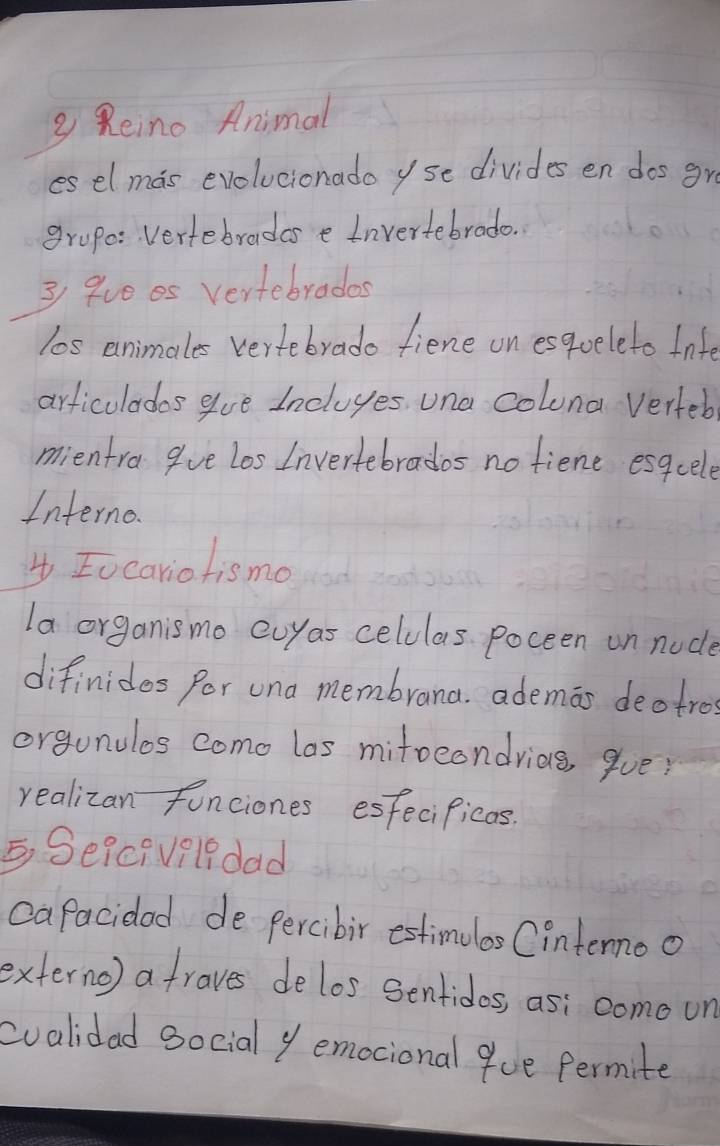 2) Reino Animal
es el más evolucionado y se divides en dos gro
grupo: vertebrados e Invertebrado.
3) que es vertebrados
los animales vertebrado tiene un esqueleto Inte
articulados que Incluyes una coluna verteb
mientra que los Invertebrados no tiene esquele
Interno.
4) Eucariotismo
la organismo cuyas celulas poceen un nucle
difinidos por una membrana. además de otros
organulos como las mitocondrias, que
realizan funciones especificas.
5) Seicivilidad
capacidad de percibir estimulos (interno o
externo) a traves de los sentidos, asi como un
cualidad social y emocional que permite